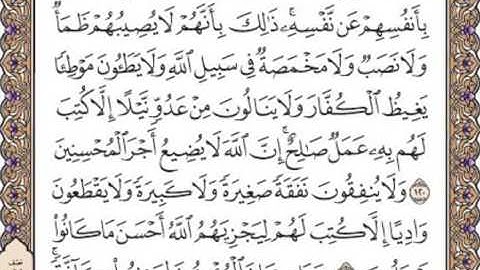 بِأَنفُسِهِمْ عَن نَّفْسِهِۦۚ ذَٰلِكَ بِأَنَّهُمْ لَا يُصِيبُهُمْ ظَمَأٌ
وَلَا نَصَبٌ وَلَا مَخْمَصَةٌ فِى سَبِيلِ ٱللَّهِ وَلَا يَطَـُٔونَ مَوْطِئًا
يَغِيظُ ٱلْكُفَّارَ وَلَا يَنَالُونَ مِنْ عَدُوٍّ نَّيْلًا إِلَّا كُتِبَ
لَهُم بِهِۦ عَمَلٌ صَـٰلِحٌۚ إِنَّ ٱللَّهَ لَا يُضِيعُ أَجْرَ ٱلْمُحْسِنِينَ
١٢٠ وَلَا يُنفِقُونَ نَفَقَةً صَغِيرَةً وَلَا كَبِيرَةً وَلَا يَقْطَعُونَ
وَادِيًا إِلَّا كُتِبَ لَهُمْ لِيَجْزِيَهُمُ ٱللَّهُ أَحْسَنَ مَا كَانُوا۟